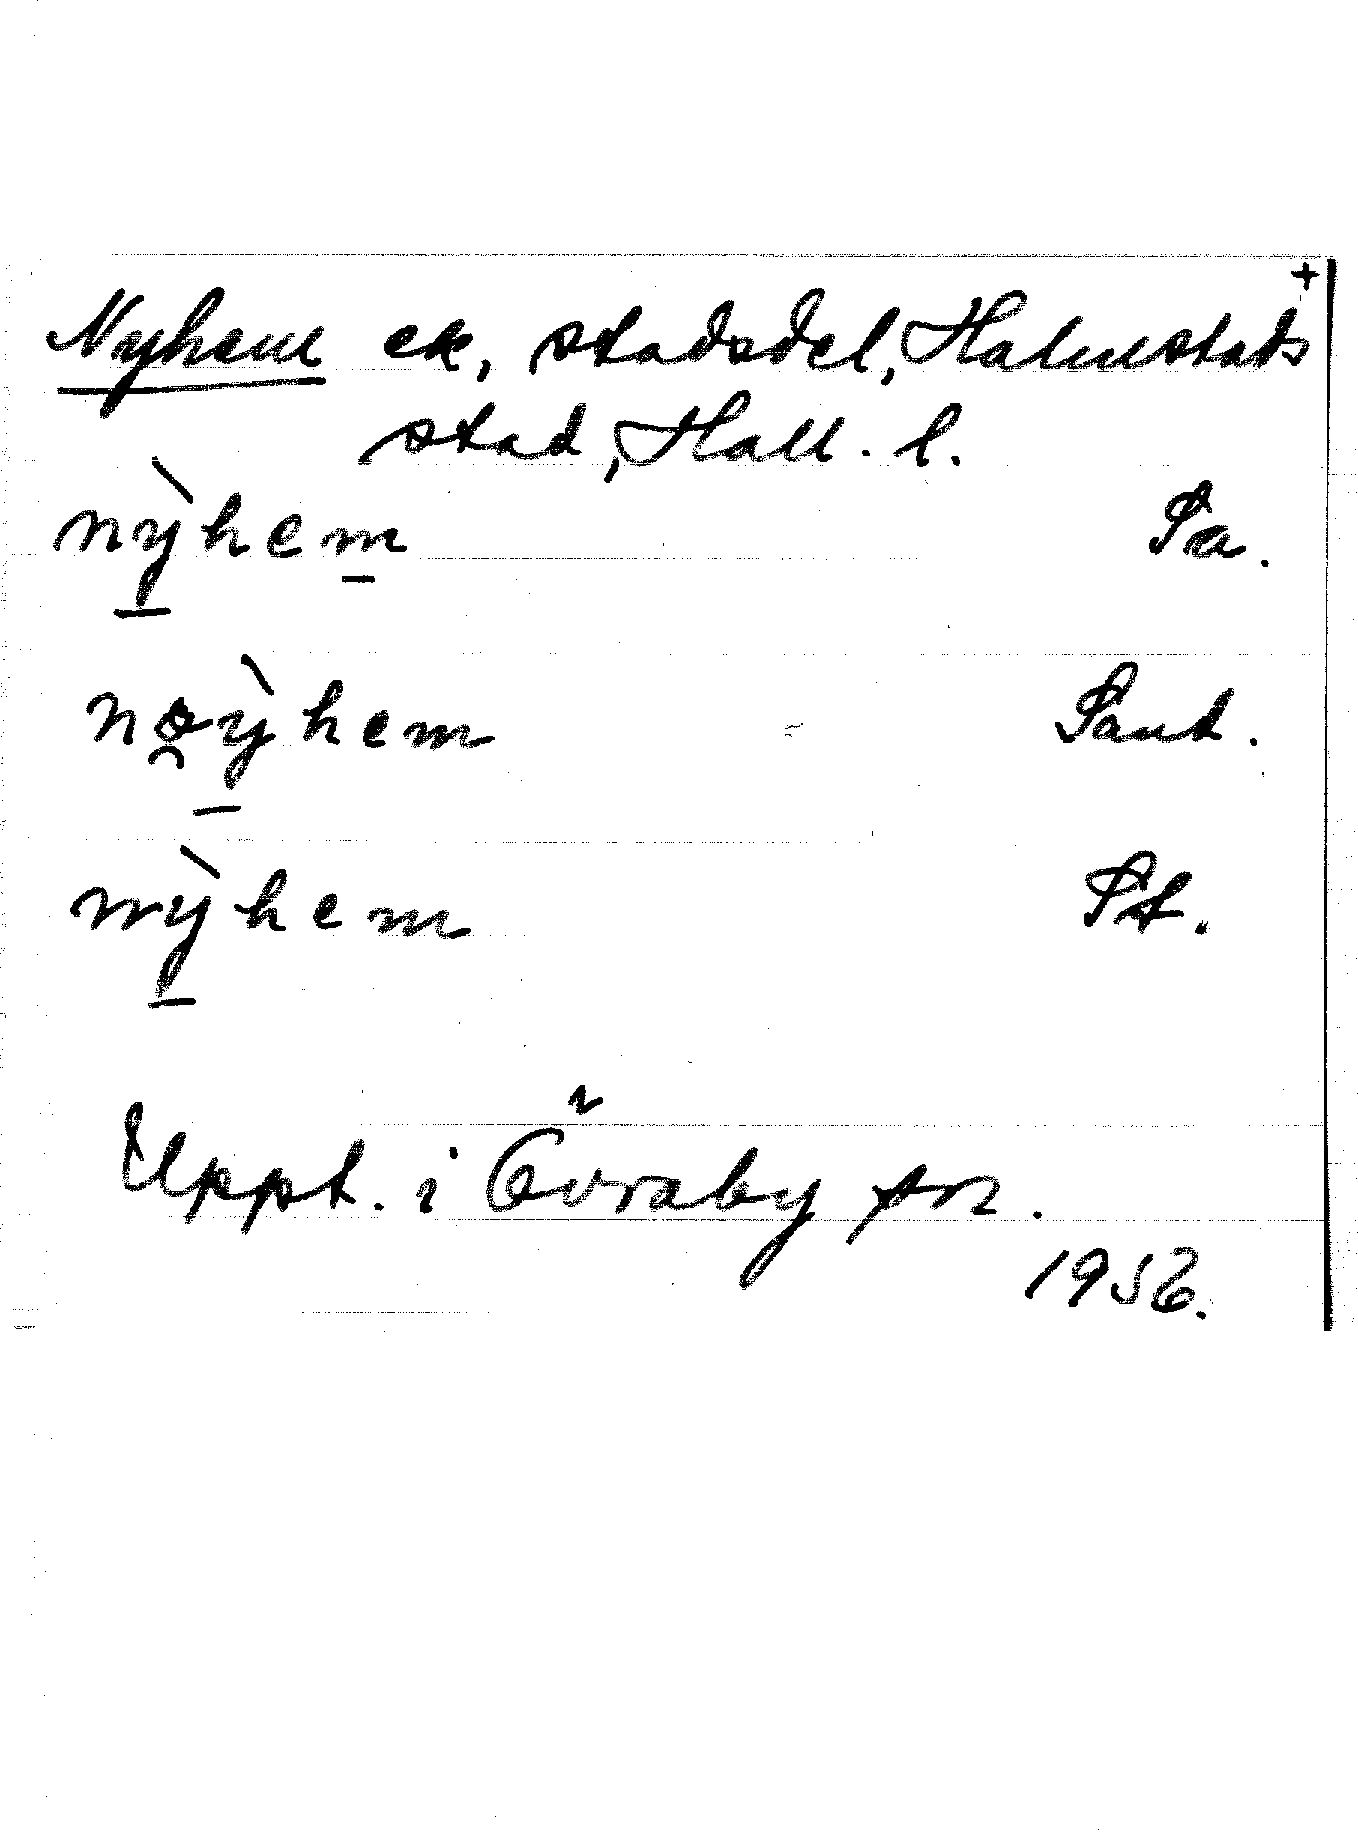 +
Nyhem ek, stadsdel, Halmstads
stad, Hall. l.
nỳhem Sa.
nøỳhem Sand.
nỳhem St.
Uppt. i Övraby sn.
1956.